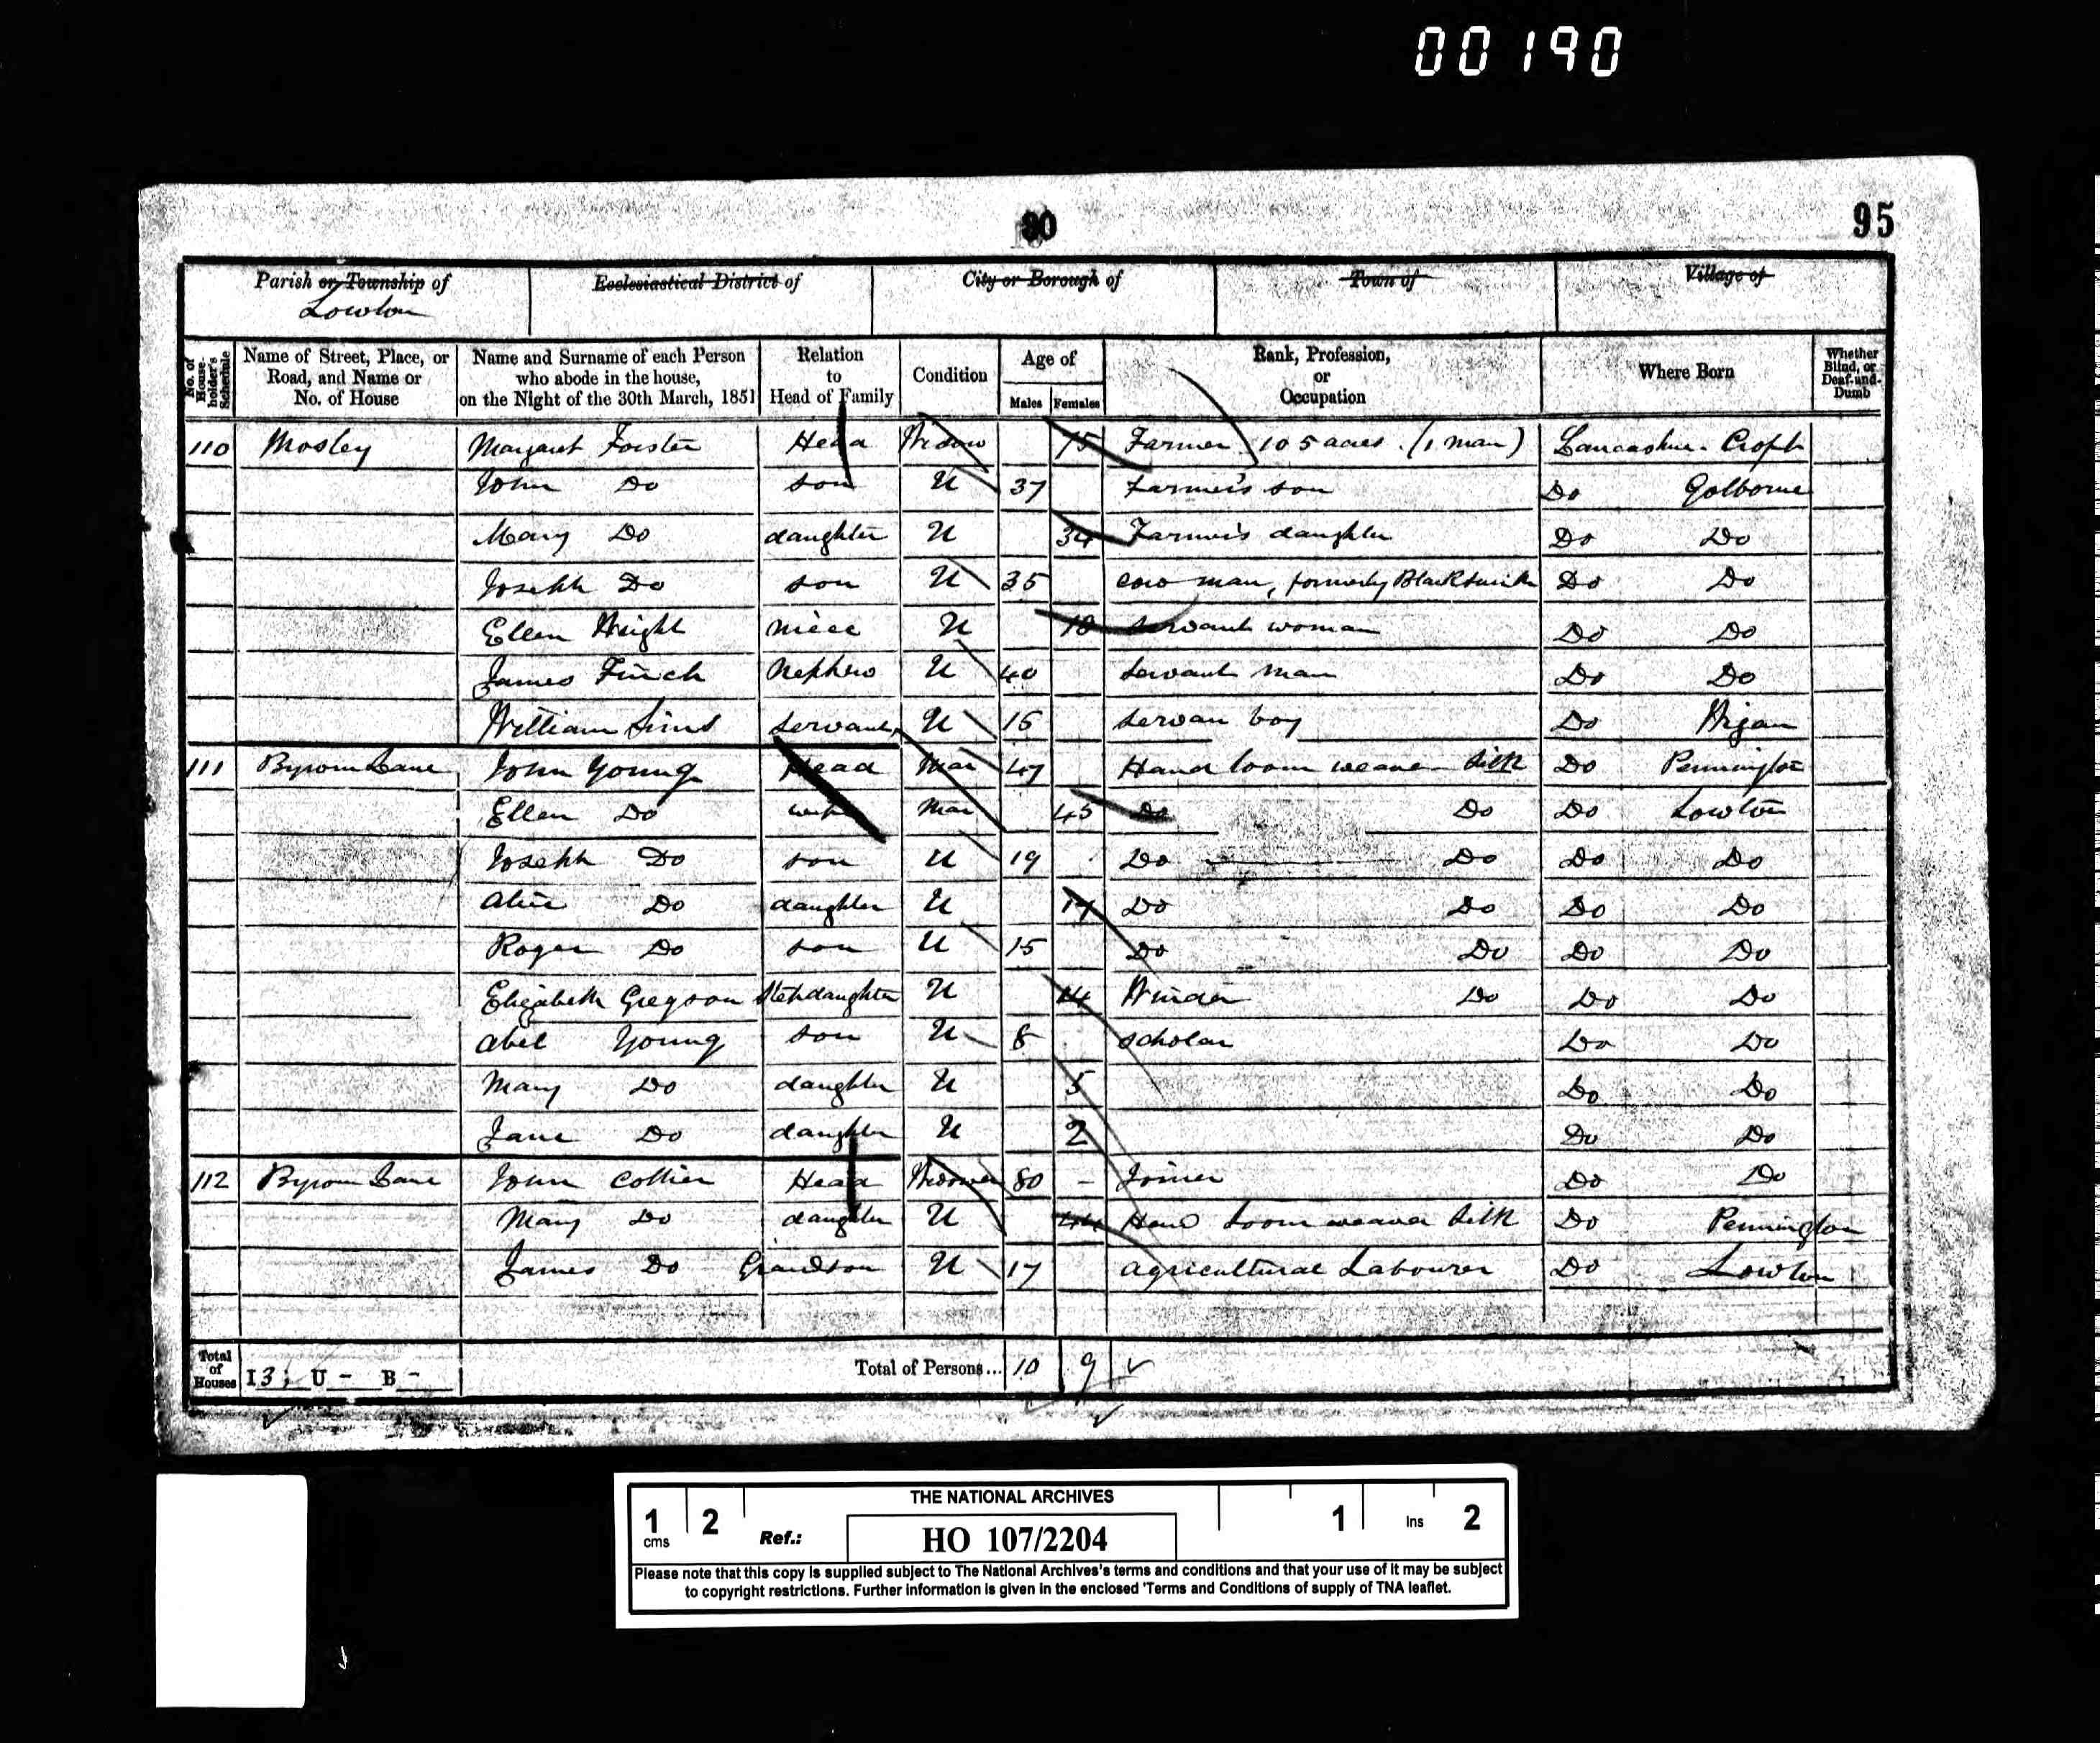 00190
30
95
Parish or Township of Ecclesiastical District of City or Borough of Town of Village of
Lowton
No. of House-holder's Schedule Name of Street, Place, or Road, and Name or No. of House Name and Surname of each Person who abode in the house, on the Night of the 30th March, 1851 Relation to Head of Family Condition Age of Males Females Rank, Profession, or Occupation Where Born Whether Blind, or Deaf-and-Dumb
110 Mosley Margaret Forster Head Widow 75 Farmer 105 acres (1 man) Lancashire Croft
John Do son U 37 Farmer's son Do Golborne
Mary Do daughter U 34 Farmer's daughter Do Do
Joseph Do son U 35 cow man, formerly Blacksmith Do Do
Ellen Wright niece U 18 servant woman Do Do
James Finch Nephew U 40 servant man Do Do
William Sims servant U 15 servan boy Do Wigan
111 Byrom Lane John Young Head Mar 47 Hand loom weaver silk Do Pennington
Ellen Do wife Mar 45 Do Do Do Lowton
Joseph Do son U 19 Do Do Do Do
Alice Do daughter U 17 Do Do Do Do
Roger Do son U 15 Do Do Do Do
Elizabeth Gregson Stepdaughter U 14 Winder Do Do Do
Abel Young son U 8 scholar Do Do
Mary Do daughter U 5 Do Do
Jane Do daughter U 2 Do Do
112 Byrom Lane John Collier Head Widower 80 - Joiner Do Do
Mary Do daughter U 44 Hand Loom weaver silk Do Pennington
James Do Grandson U 17 agricultural Labourer Do Lowton
Total of Houses I 3 U - B - Total of Persons... 10 9
THE NATIONAL ARCHIVES
1 cms 2 Ref.: HO 107/2204 1 Ins 2
Please note that this copy is supplied subject to The National Archives's terms and conditions and that your use of it may be subject
to copyright restrictions. Further information is given in the enclosed 'Terms and Conditions of supply of TNA leaflet.